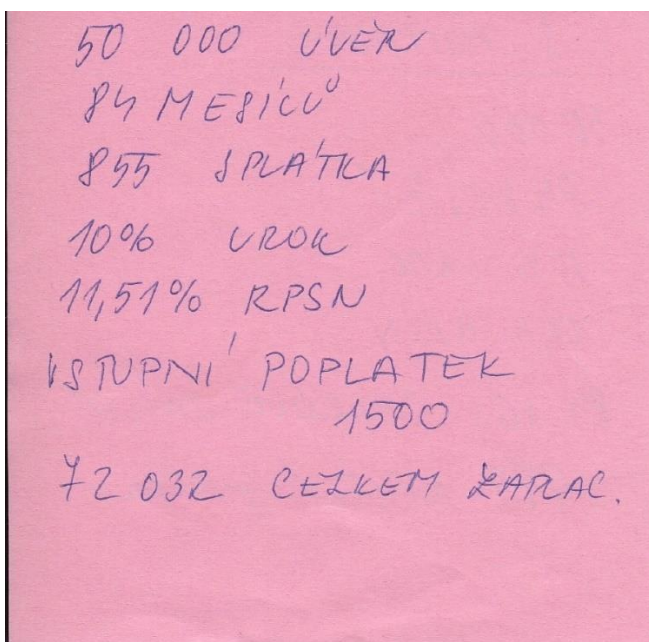 50 000 ÚVĚR
84 MESÍCŮ
855 SPLÁTKA
10% UROK
11,51% RPSN
VSTUPNÍ POPLATEK
1500
72 032 CELKEM ZAPLAC.